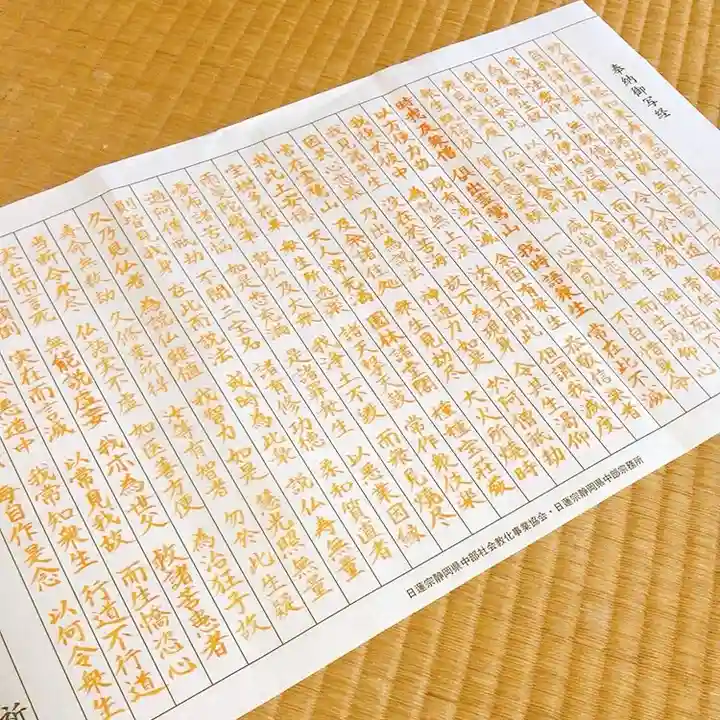 奉納御写経
妙法蓮華経如来寿量品第十六
自我得仏来 所経諸劫数 無量百千万 億載阿僧祇
常説法教化 無数億衆生 令入於仏道 爾来無量劫
為度衆生故 方便現涅槃 而実不滅度 常住此説法
我常住於此 以諸神通力 令顛倒衆生 雖近而不見
衆見我滅度 広供養舎利 咸皆懐恋慕 而生渇仰心
衆生既信伏 質直意柔軟 一心欲見仏 不自惜身命
時我及衆僧 倶出霊鷲山 我時語衆生 常在此不滅
以方便力故 現有滅不滅 余国有衆生 恭敬信楽者
我復於彼中 為説無上法 汝等不聞此 但謂我滅度
我見諸衆生 没在於苦海 故不為現身 令其生渇仰
因其心恋慕 乃出為説法 神通力如是 於阿僧祇劫
常在霊鷲山 及余諸住処 衆生見劫尽 大火所焼時
我此土安穏 天人常充満 園林諸堂閣 種種宝荘厳
宝樹多花果 衆生所遊楽 諸天撃天鼓 常作衆伎楽
雨曼陀羅華 散仏及大衆 我浄土不毀 而衆見焼尽
憂怖諸苦悩 如是悉充満 是諸罪衆生 以悪業因縁
過阿僧祇劫 不聞三宝名 諸有修功徳 柔和質直者
則皆見我身 在此而説法 或時為此衆 説仏寿無量
久乃見仏者 為説仏難値 我智力如是 慧光照無量
寿命無数劫 久修業所得 汝等有智者 勿於此生疑
当断令永尽 仏語実不虚 如医善方便 為治狂子故
実在而言死 無能説虚妄 我亦為世父 救諸苦患者
顛倒 実在而言滅 以常見我故 而生憍恣心
悪道中 我常知衆生 行道不行道
毎自作是念 以何令衆生
日蓮宗静岡県中部社会教化事業協会・日蓮宗静岡県中部宗務所
祈